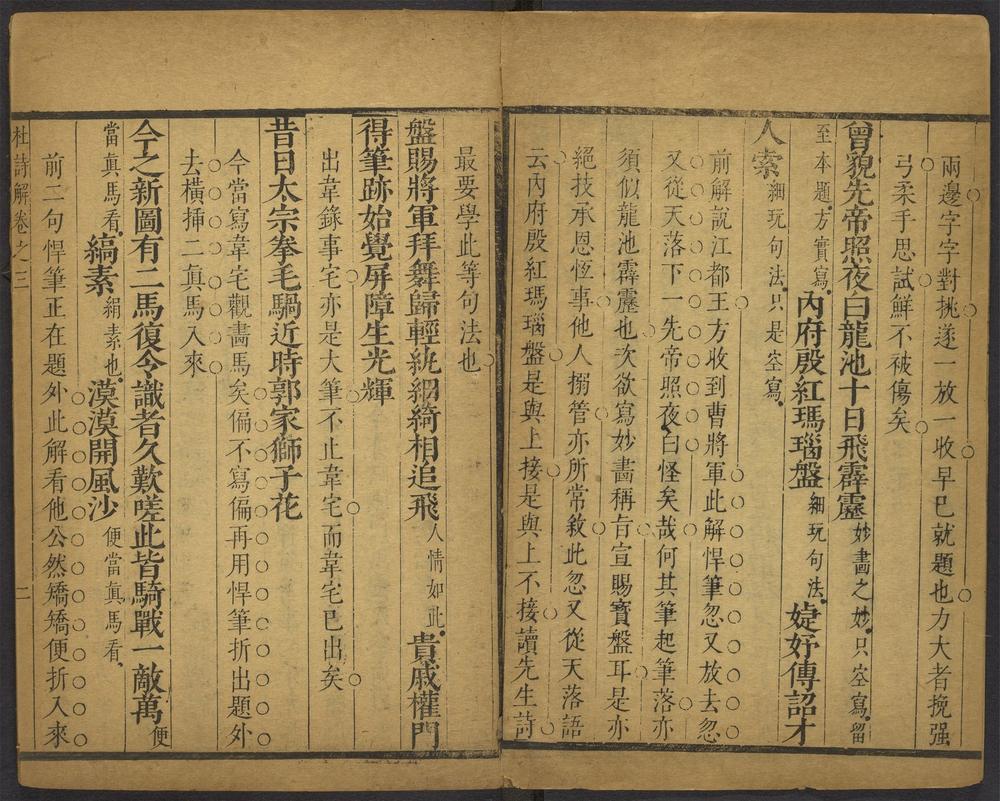 兩邊字字對挑遂一放一收早已就題也力大者挽强
弓柔手思試鮮不被傷矣
曾貌先帝照夜白龍池十日飛霹靂妙畵之妙只空寫留
至本題方實寫內府殷紅瑪瑙盤細玩句法婕妤傳詔才
人索細玩句法只是空寫
前解說江都王方收到曹將軍此解悍筆忽又放去忽
又從天落下一先帝照夜白怪矣哉何其筆起筆落亦
須似龍池霹靂也次欲寫妙畵稱旨宣賜寳盤耳是亦
絕技承恩恆事他人搦管亦所常敘此忽又從天落語
云內府殷紅瑪瑙盤是與上接是與上不接讀先生詩
最要學此等句法也
盤賜將軍拜舞歸輕紈細綺相追飛人情如此貴戚權門
得筆跡始覺屏障生光輝
出韋錄事宅亦是大筆不止韋宅而韋宅已出矣
昔日太宗拳毛騧近時郭家獅子花
今當寫韋宅觀畵馬矣偏不寫偏再用悍筆折出題外
去橫揷二眞馬入來
今之新圖有二馬復令識者久歎嗟此皆騎戰一敵萬便
當眞馬看縞素絹素也漠漠開風沙便當眞馬看
前二句悍筆正在題外此解看他公然矯矯便折入來
杜詩解卷之三 二